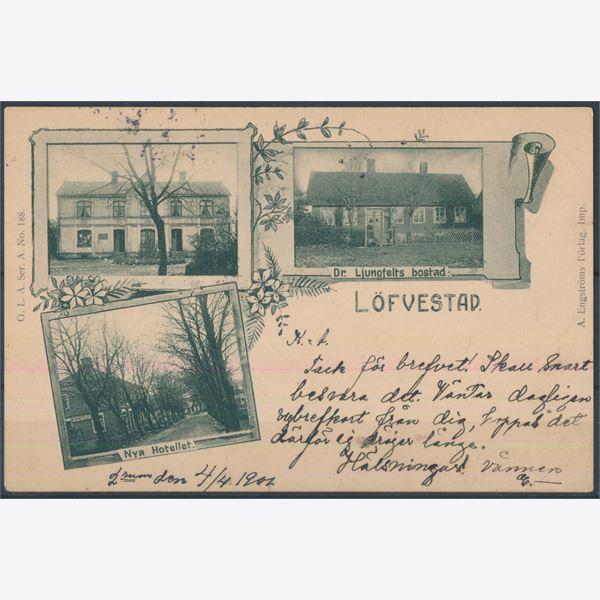 G. L. A. Ser. A. No. 188.
Dr. Ljungfelts bostad.
LÖFVESTAD.
A. Engströms Förlag. Imp.
K. t.
Tack för brefvet! Skall snart
besvara det. Väntar dagligen
vybrefkort från dig, hoppas det
därför ej dröjer länge.
Hälsningar vännen
Nya Hotellet.
den 4/4 1902